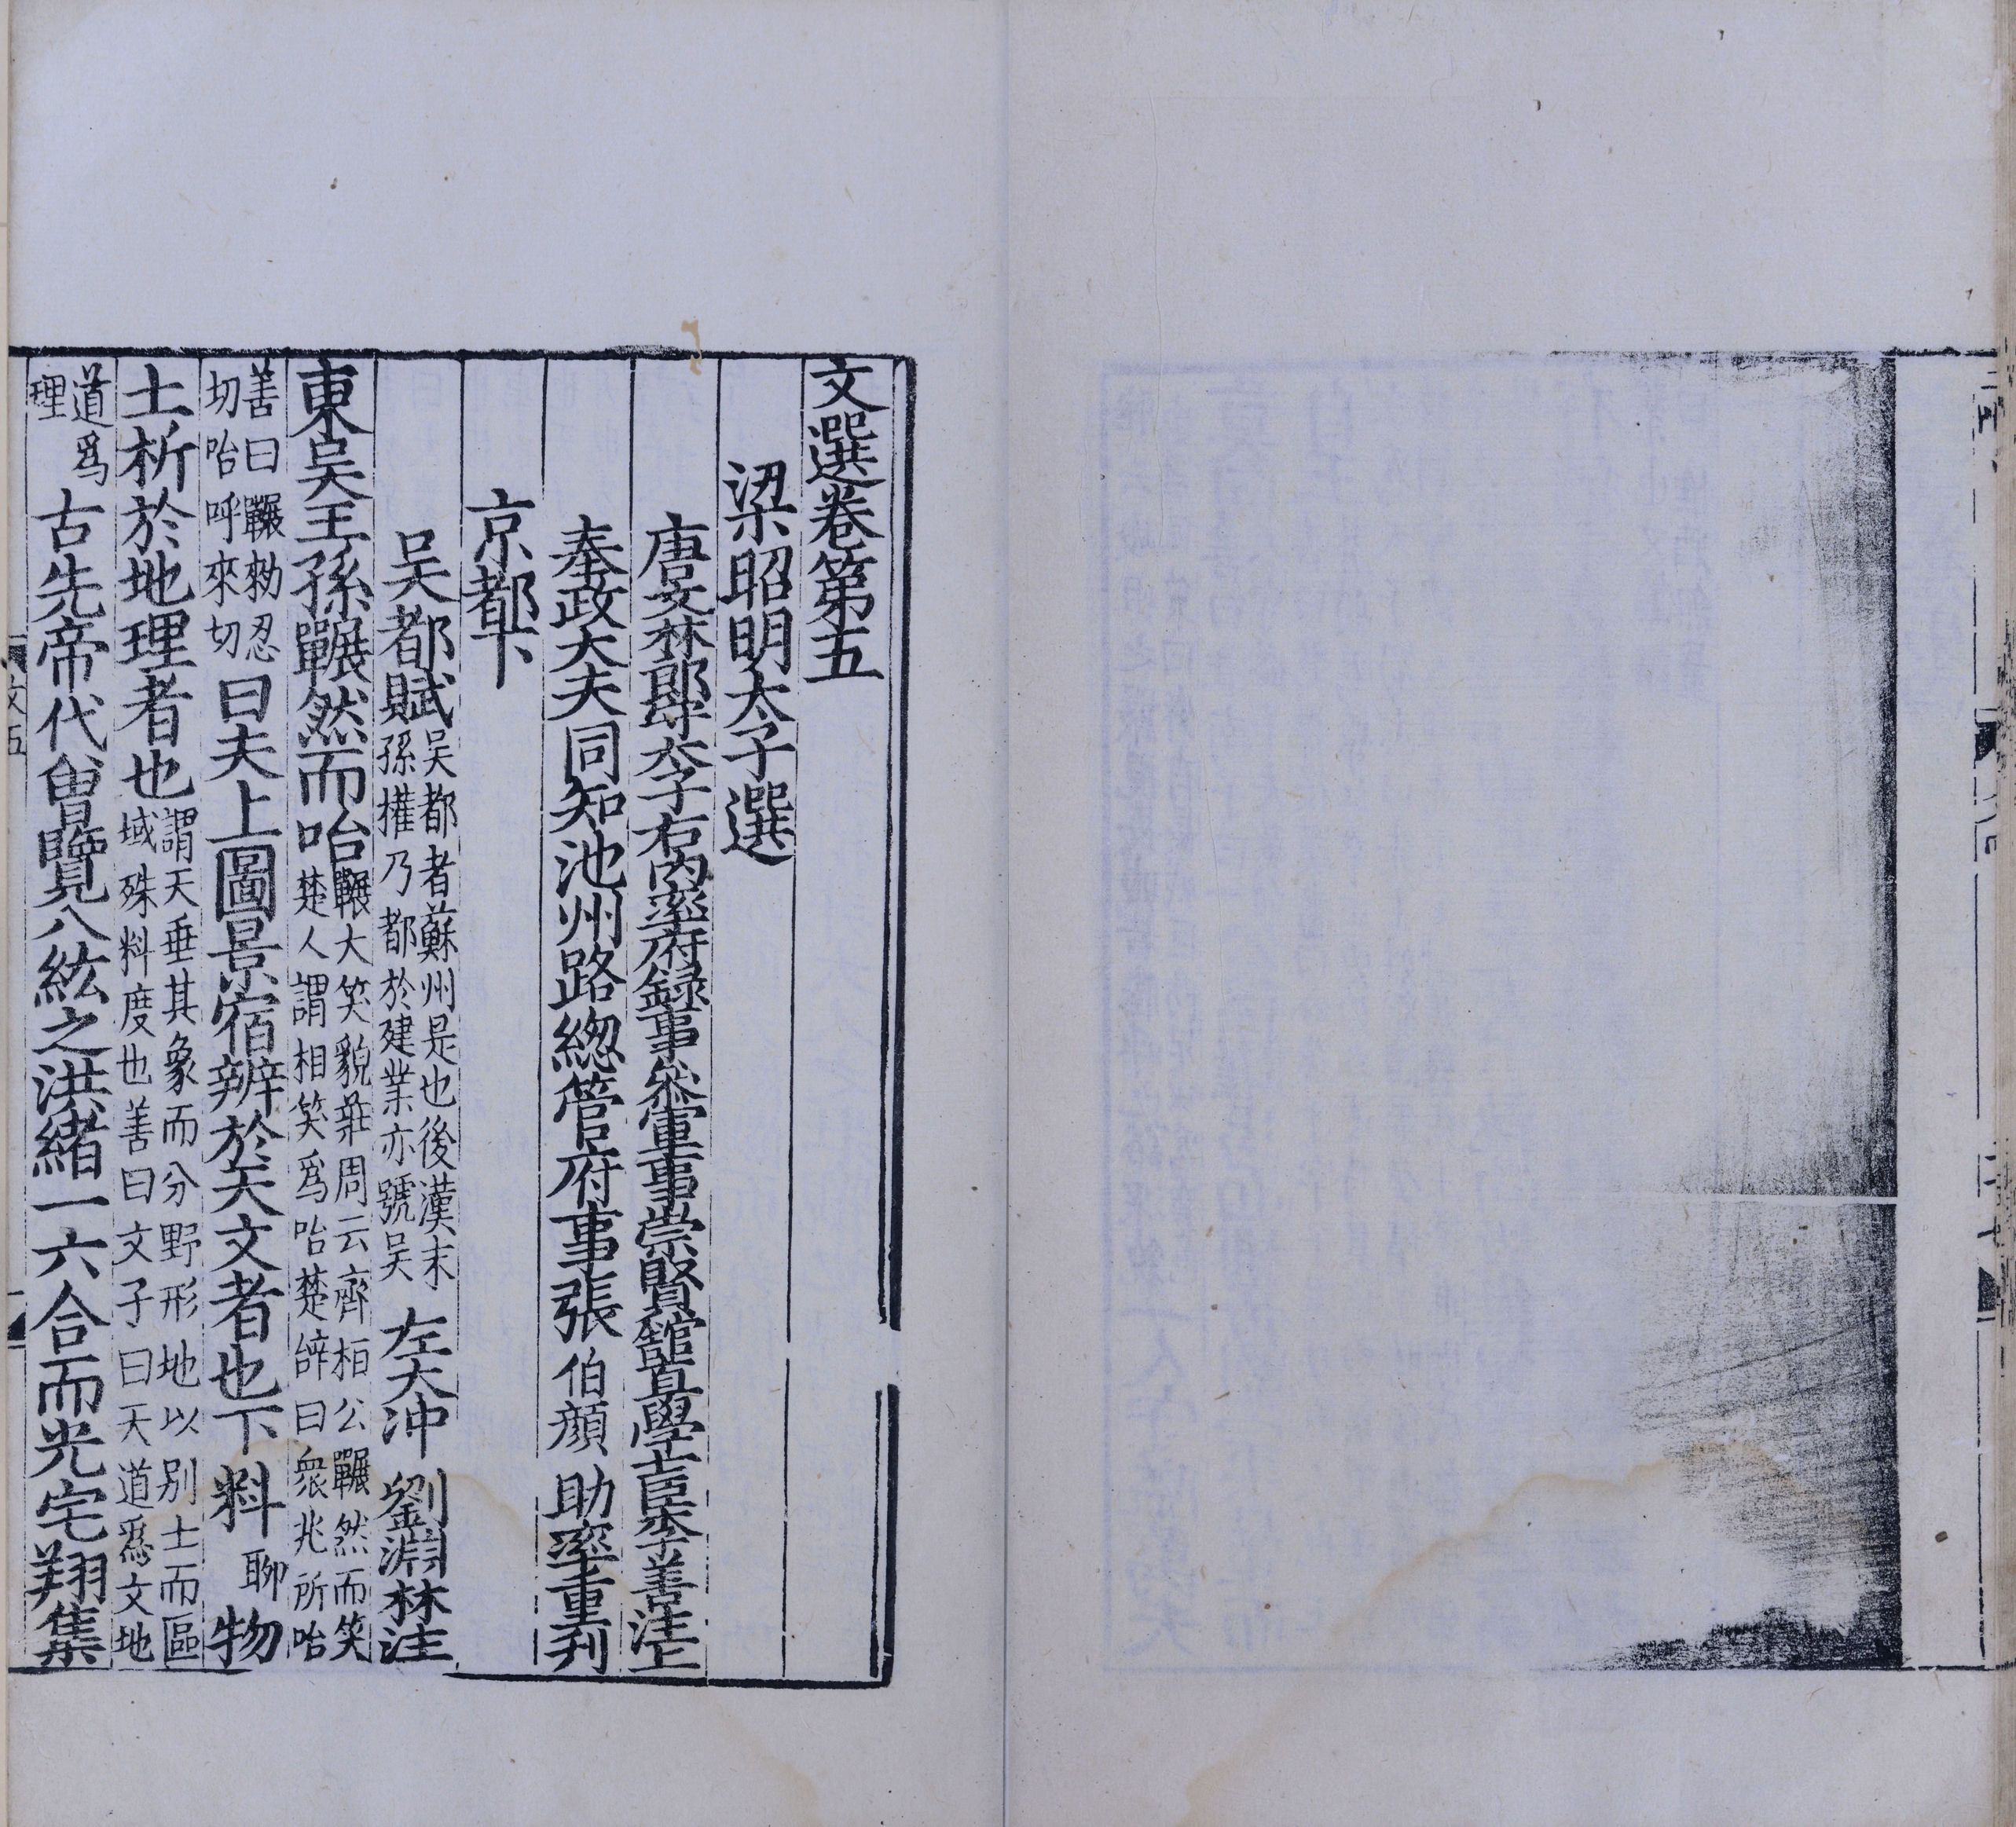 文選卷第五
梁昭明太子選
唐文林郎守太子右內率府錄事參軍事崇賢館直學士臣李善注上
奉政大夫同知池州路緫管府事張伯顔助率重刊
京都下
吳都賦吳都者蘇州是也後漢末孫權乃都於建業亦號吳左太沖劉淵林注
東吳王孫囅然而咍囅大笑貌莊周云齊桓公囅然而笑楚人謂相笑爲咍楚辭曰衆兆所咍
善曰囅勑忍切咍呼來切曰夫上圖景宿辨於天文者也下料聊物
土析於地理者也謂天垂其象而分野形地以别土而區域殊料度也善曰文子曰天道爲文地
道爲理古先帝代曾覽八紘之洪緒一六合而光宅翔集
文五